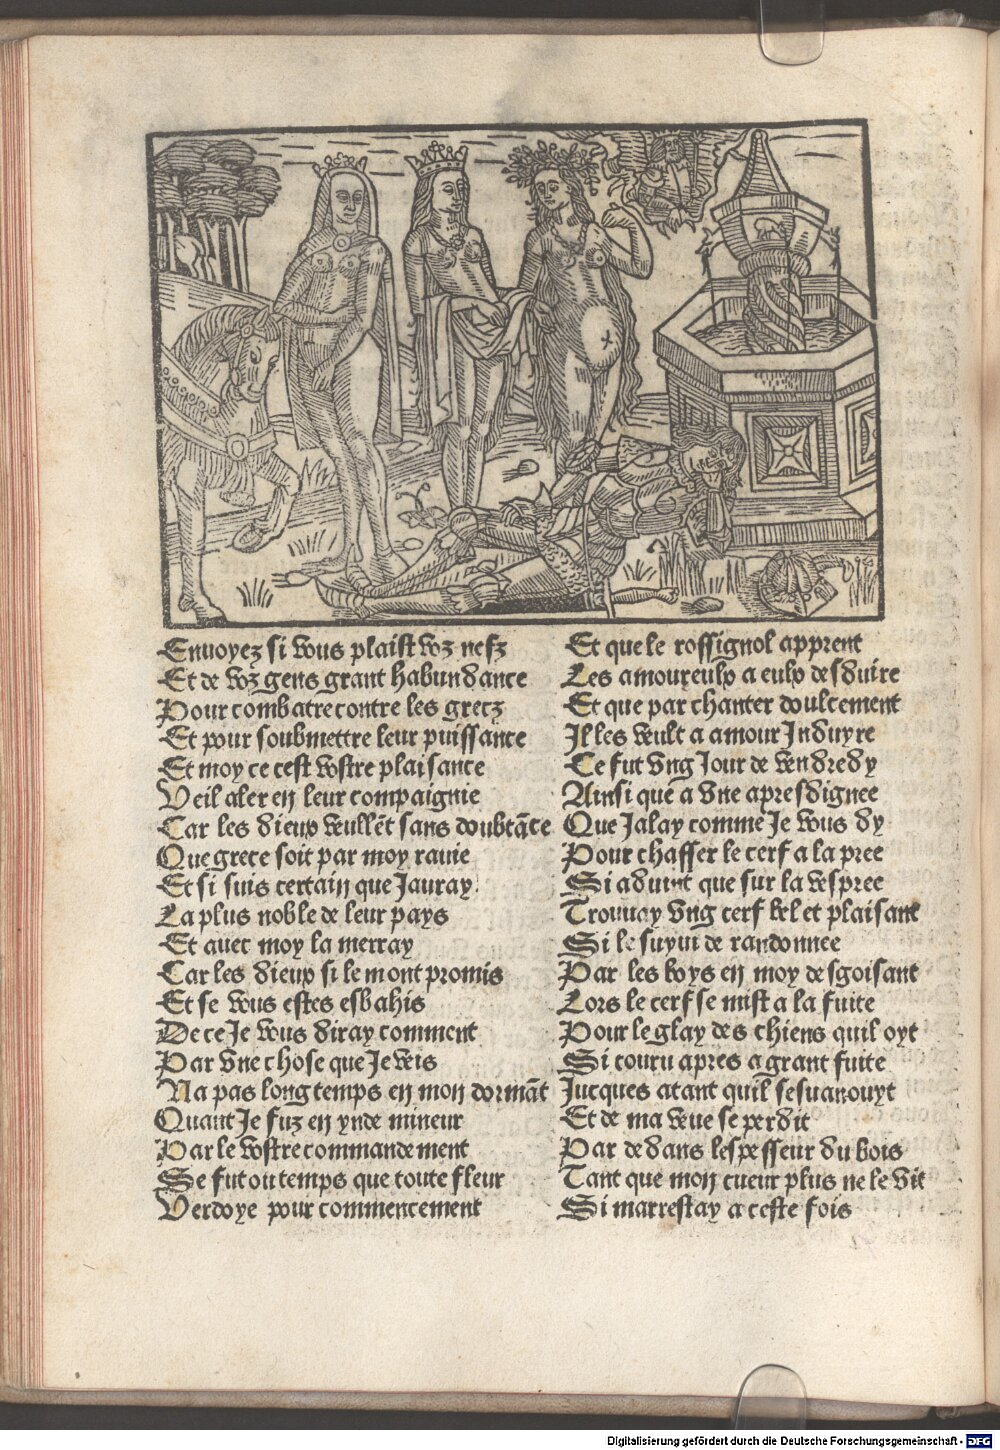 Enuoyez si vous plaist voz nefz
Et de voz gens grant habundance
Pour combatre contre les grecz
Et pour soubmettre leur puissance
Et moy ce cest vostre plaisance
Veil aler en leur compaignie
Car les dieux veullēt sans doubtāce
Que grece soit par moy rauie
Et si suis certain que Jauray
La plus noble de leur pays
Et auec moy la merray
Car les dieux si le mont promis
Et se vous estes esbahis
De ce Je vous diray comment
Par vne chose que Je veis
Na pas long temps en mon dormāt
Quant Je fuz en ynde mineur
Par le vostre commandement
Se fut ou temps que toute fleur
Verdoye pour commencement
Et que le rossignol apprent
Les amoureulx a eulx desduire
Et que par chanter doulcement
Il les veult a amour Induyre
Ce fut vng Jour de vendredy
Ainsi que a vne apresdignee
Que Jalay comme Je vous dy
Pour chasser le cerf a la pree
Si aduint que sur la vespree
Trouuay vng cerf bel et plaisant
Si le suyui de randonnee
Par les boys en moy desgoisant
Lors le cerf se mist a la fuite
Pour le glay des chiens quil oyt
Si couru apres a grant fuite
Jucques atant quil sesuanouyt
Et de ma veue se perdit
Par dedans lespesseur du bois
Tant que mon cueur plus ne le vit
Si marrestay a ceste fois
Digitalisierung gefördert durch die Deutsche Forschungsgemeinschaft - DFG